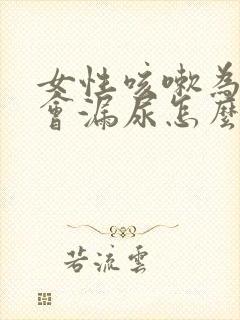 女性咳嗽為
會漏尿怎麼
若流雲